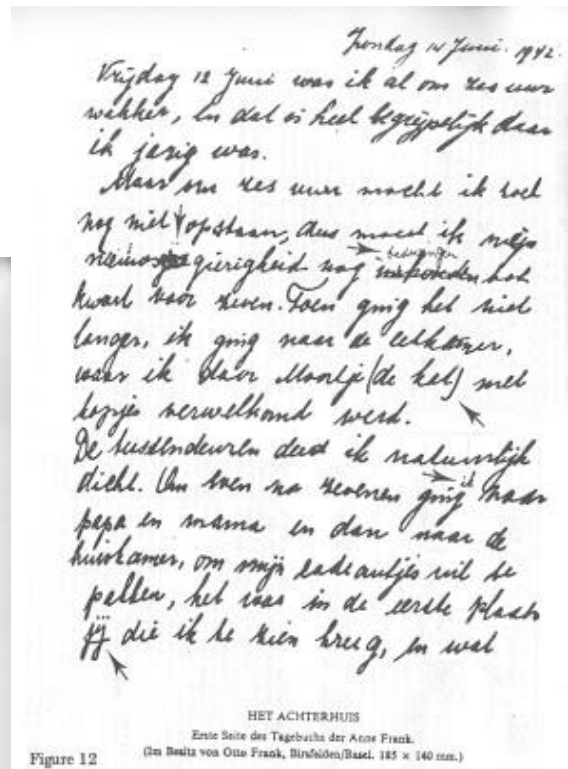 Zondag 14 Juni. 1942.
Vrijdag 12 Juni was ik al om zes uur
wakker, en dat is heel begrijpelijk daar
ik jarig was.
Maar om zes uur mocht ik toch
nog niet opstaan, dus moest ik mijn
nieuwsgierigheid nog bedwingen tot
kwart voor zeven. Toen ging het niet
langer, ik ging naar de eetkamer,
waar ik door Moortje (de kat) met
kopjes verwelkomd werd.
De tussendeuren deed ik natuurlijk
dicht. Om even na zevenen ging ik naar
papa en mama en dan naar de
huiskamer, om mijn cadeautjes uit te
pakken, het was in de eerste plaats
jij die ik te zien kreeg, en wat
HET ACHTERHUIS
Erste Seite des Tagebuchs der Anne Frank.
(Im Besitz von Otto Frank, Birsfelden/Basel. 185 × 140 mm.)
Figure 12